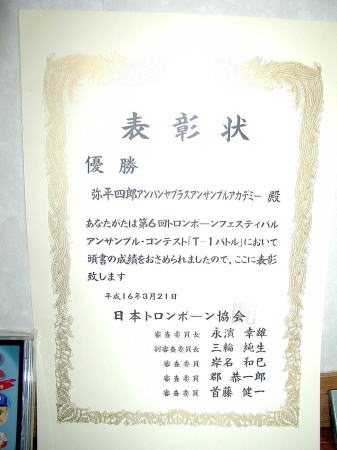 表彰状
優勝
弥平四郎アンバンヤブラスアンサンブルアカデミー 殿
あなたがたは第6回トロンボーンフェスティバル
アンサンブル・コンテスト「T-1バトル」において
頭書の成績をおさめられましたので、ここに表彰
致します
平成16年3月21日
日本トロンボーン協会
審査委員長 永濱 幸雄
副審査委員長 三輪 純生
審査委員 岸名 和巳
審査委員 郡 恭一郎
審査委員 首藤 健一